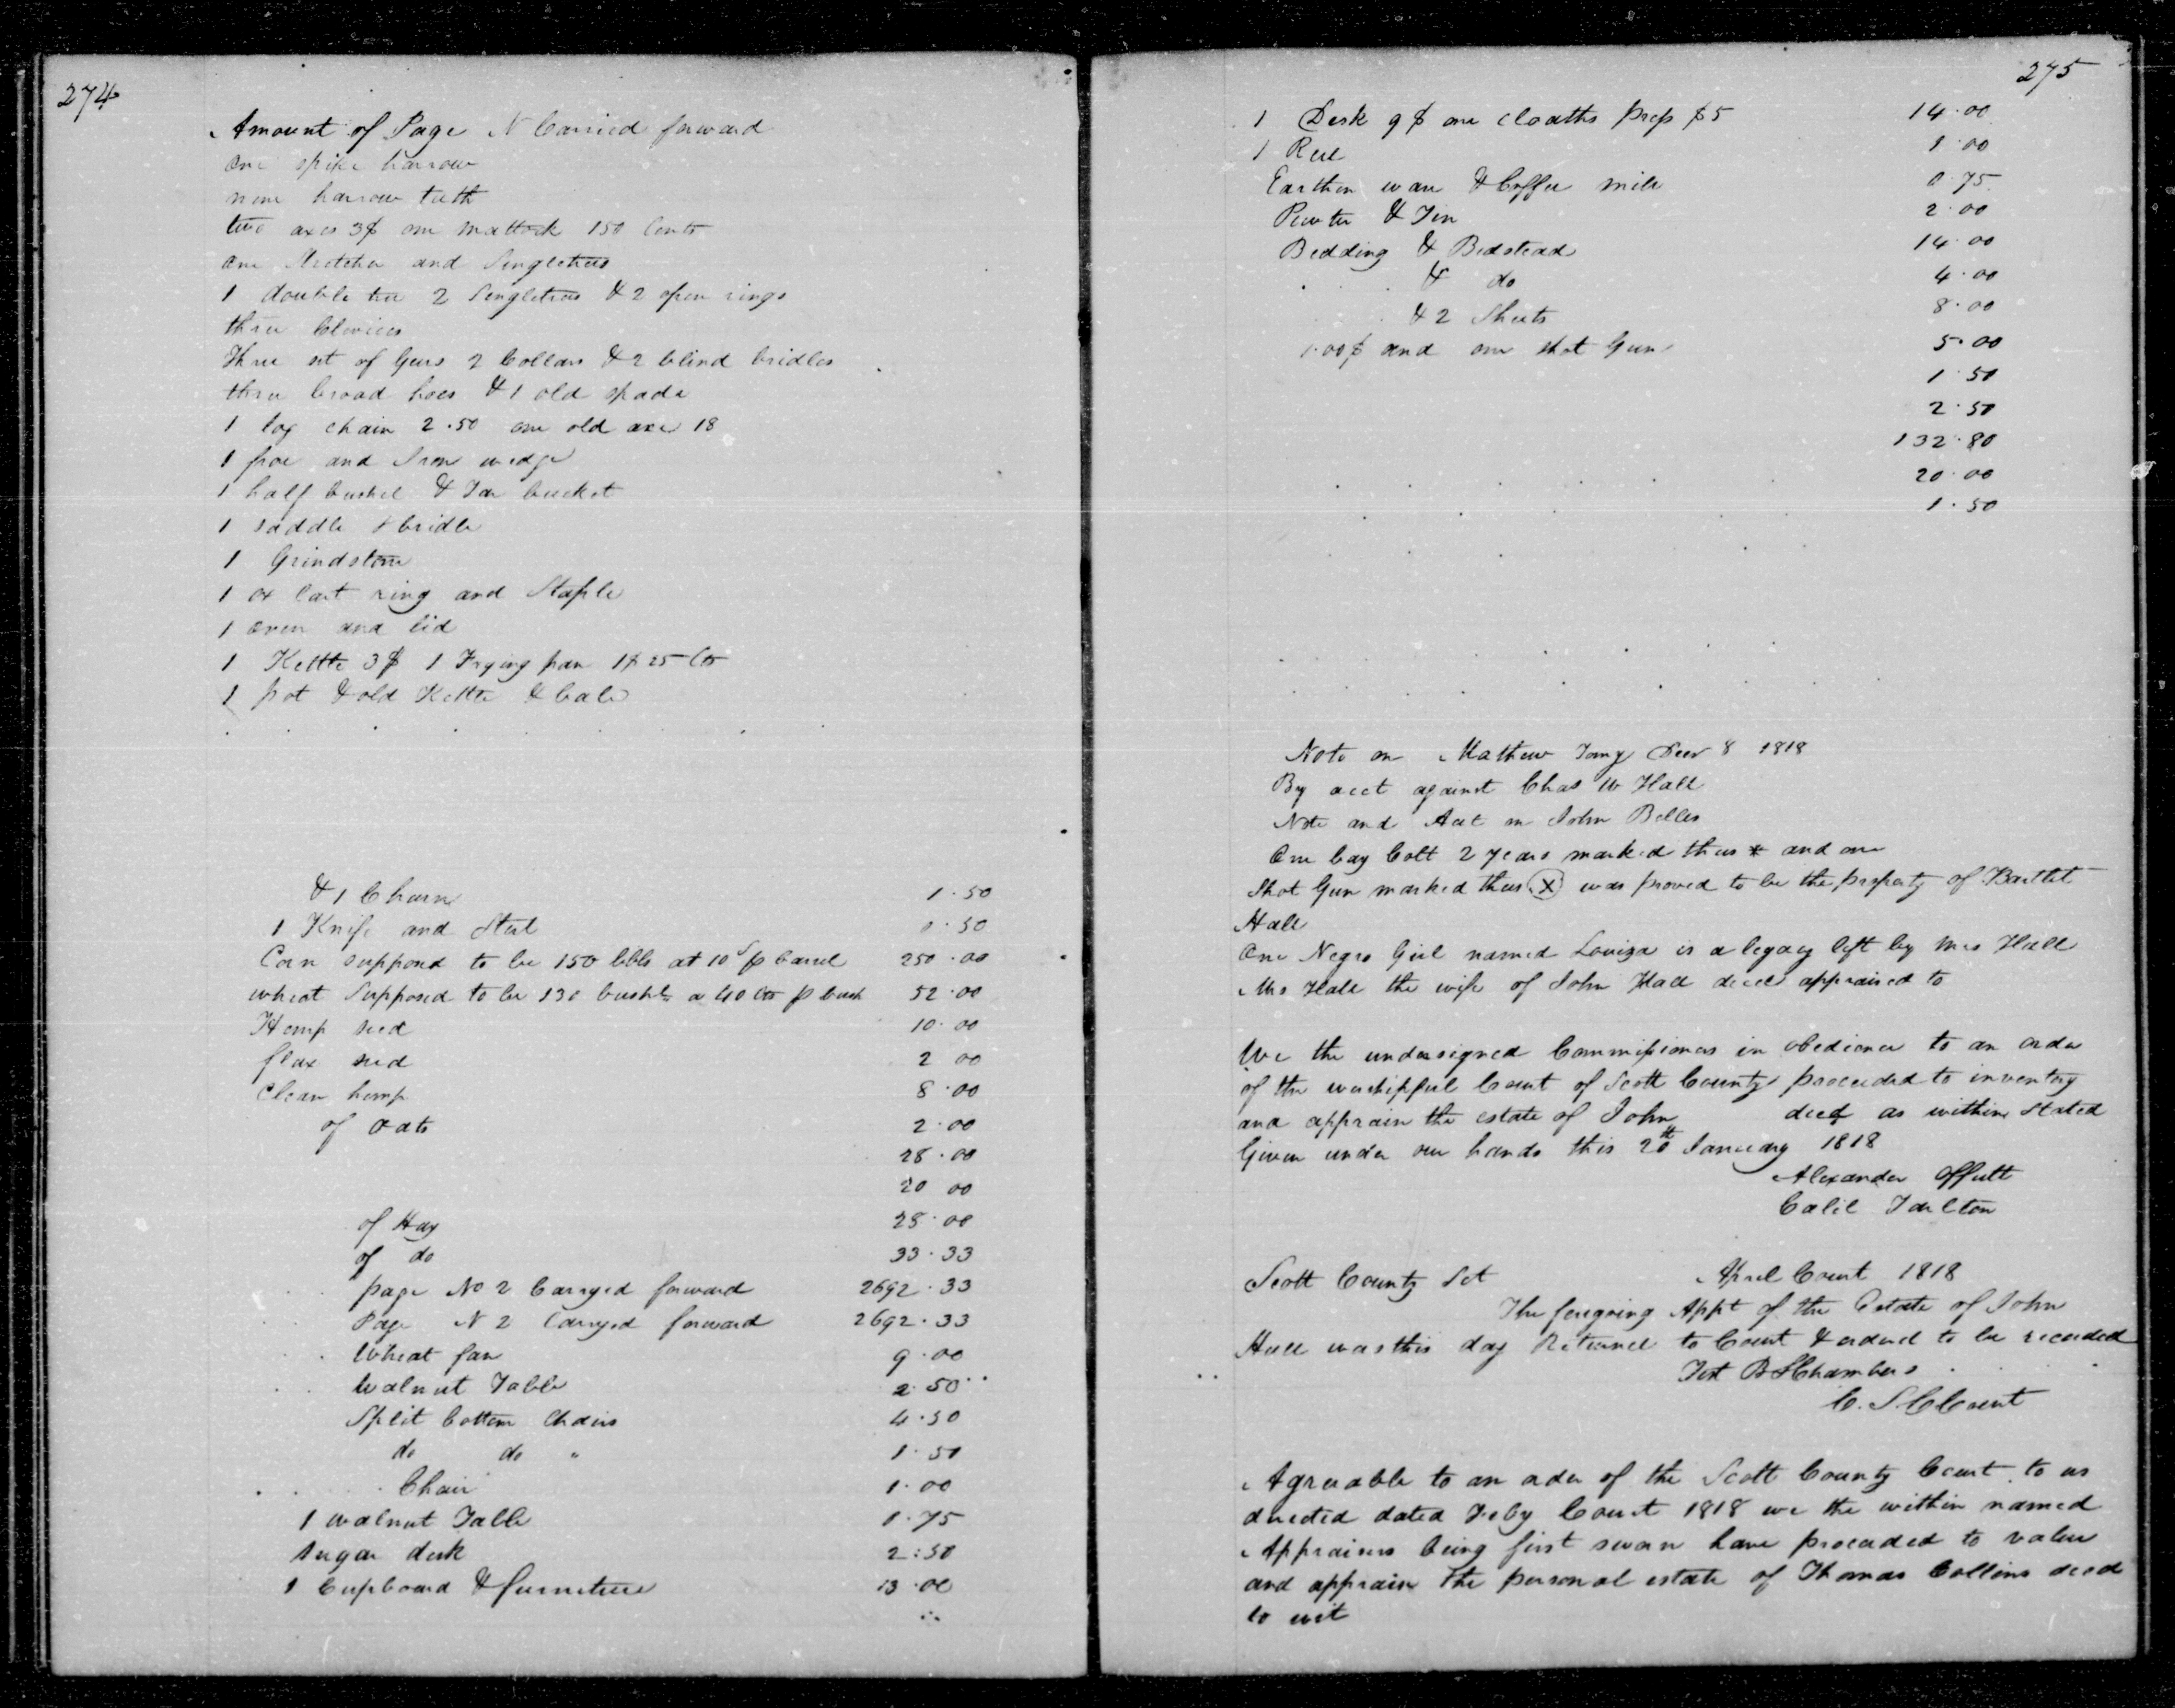 274
Amount of Page N Carried forward
One spike harrow
nine harrow teeth
two axes 3$ one mattock 150 Cents
one Stretcher and Singletrees
1 double tree 2 Singletrees & 2 open rings
three Clevices
Three set of Gears 2 Collars & 2 blind bridles
three broad hoes & 1 old spade
1 log chain 2.50 one old axe 18
1 froe and Iron wedge
1 half bushel & Tar bucket
1 saddle & bridle
1 Grindstone
1 ox Cart ring and Staple
1 oven and lid
1 Kettle 3$ 1 Frying pan 1$ 25 Cts
1 pot & old Kettle & bale
& 1 Churn 1.50
1 Knife and Steel 0.50
Corn supposed to be 150 bbls at 10s p barrel 250.00
wheat Supposed to be 130 bushls a 40 cts p bush 52.00
Hemp seed 10.00
flax seed 2 00
Clean hemp 8.00
of oats 2.00
28.00
20 00
of Hay 28.00
of do 33.33
page No 2 Carryed forward 2692.33
Page N 2 Carryed forward 2692.33
Wheat fan 9.00
Walnut Table 2.50
Split bottom Chairs 4.50
do do " 1.50
Chair 1.00
1 walnut Table 1.75
Sugar desk 2:50
1 Cupboard & furniture 13.00
275
1 Desk 9$ one cloaths press $5 14.00
1 Reel 1.00
Earthen ware & Coffee mill 0.75
Pewter & Tin 2.00
Bedding & Bedstead 14.00
& do 4.00
& 2 Sheets 8.00
1.00$ and one shot Gun 5.00
1.50
2.50
132.80
20.00
1.50
Note on Mathew Decr 8 1818
By acct against Chas W Hall
Note and Acct on John
One bay Colt 2 years marked thus * and one
Shot Gun marked thus (X) was proved to be the property of Bartlet
Hall
One Negro Girl named Louiza is a legacy left by Mrs Hall
Mrs Hall the wife of John Hall decd appraised to
We the undersigned Commissioners in obedience to an order
of the worshipful Court of Scott County proceeded to inventory
and appraise the estate of John decd as within stated
Given under our hands this 20th January 1818
Alexander Offutt
Calib Tarlton
Scott County Sct April Court 1818
The foregoing Appt of the Estate of John
Hall was this day Returned to Court & ordered to be recorded
Test B S Chambers
C. S. C Court
Agreeable to an order of the Scott County Court to us
directed dated Feby Court 1818 we the within named
Appraisers being first sworn have proceeded to value
and appraise the personal estate of Thomas Collins decd
to wit